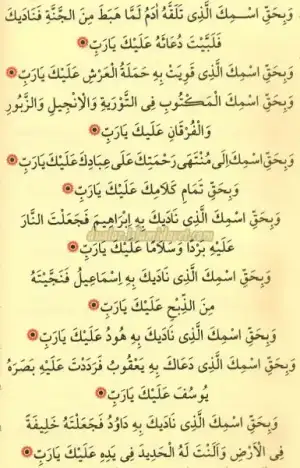 وَبِحَقِّ اسْمِكَ الَّذِى تَلَقَّهُ اٰدَمُ لَمَّا هَبَطَ مِنَ الْجَنَّةِ فَنَادَيكَ
فَلَبَّيْتَ دُعَائَهُ عَلَيْكَ يَارَبِّ
وَبِحَقِّ اسْمِكَ الَّذِى قَوِيَتْ بِهِ حَمَلَةُ الْعَرْشِ عَلَيْكَ يَارَبِّ
وَبِحَقِّ اسْمِكَ الْمَكْتُوبِ فِى التَّوْرٰيةِ وَالْاِنْجِيلِ وَالزَّبُورِ
وَالْفُرْقَانِ عَلَيْكَ يَارَبِّ
وَبِحَقِّ اسْمِكَ اِلٰى مُنْتَهٰى رَحْمَتِكَ عَلٰى عِبَادِكَ عَلَيْكَ يَارَبِّ
وَبِحَقِّ تَمَامِ كَلَامِكَ عَلَيْكَ يَارَبِّ
وَبِحَقِّ اسْمِكَ الَّذِى نَادَيكَ بِهِ اِبْرَاهِيمُ فَجَعَلْتَ النَّارَ
عَلَيْهِ بَرْدًا وَسَلَامًا عَلَيْكَ يَارَبِّ
وَبِحَقِّ اسْمِكَ الَّذِى نَادَيكَ بِهِ اِسْمَاعِيلُ فَنَجَّيْتَهُ
مِنَ الذِّبْحِ عَلَيْكَ يَارَبِّ
وَبِحَقِّ اسْمِكَ الَّذِى نَادَيكَ بِهِ هُودُ عَلَيْكَ يَارَبِّ
وَبِحَقِّ اسْمِكَ الَّذِى دَعَاكَ بِهِ يَعْقُوبُ فَرَدَدْتَ عَلَيْهِ بَصَرَهُ
يُوسُفَ عَلَيْكَ يَارَبِّ
وَبِحَقِّ اسْمِكَ الَّذِى نَادَيكَ بِهِ دَاوُدُ فَجَعَلْتَهُ خَلِيفَةً
فِى الْاَرْضِ وَاَلَنْتَ لَهُ الْحَدِيدَ فِى يَدِهِ عَلَيْكَ يَارَبِّ